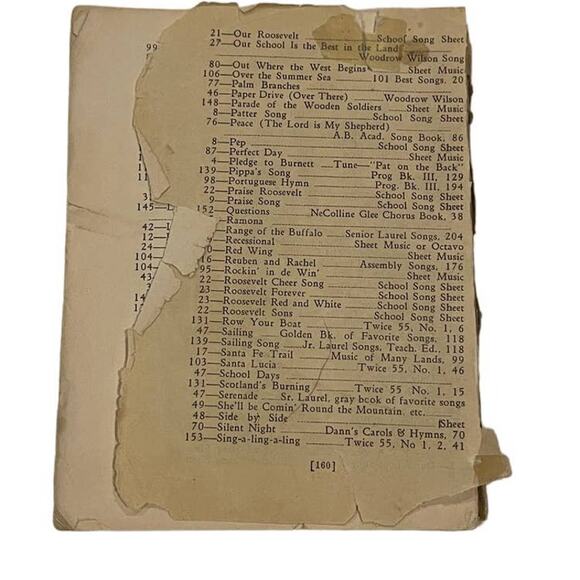 21—Our Roosevelt School Song Sheet
27—Our School Is the Best in the Land
Woodrow Wilson Song
80—Out Where the West Begins Sheet Music
106—Over the Summer Sea 101 Best Songs, 20
77—Palm Branches
46—Paper Drive (Over There) Woodrow Wilson
148—Parade of the Wooden Soldiers Sheet Music
8—Patter Song School Song Sheet
76—Peace (The Lord is My Shepherd)
A.B. Acad. Song Book, 86
8—Pep School Song Sheet
87—Perfect Day Sheet Music
4—Pledge to Burnett Tune—"Pat on the Back"
139—Pippa's Song Prog. Bk. III, 129
98—Portuguese Hymn Prog. Bk. III, 194
22—Praise Roosevelt School Song Sheet
9—Praise Song School Song Sheet
152—Questions NeCollins Glee Chorus Book, 38
Ramona
Range of the Buffalo Senior Laurel Songs, 204
Recessional Sheet Music or Octavo
0—Red Wing Sheet Music
16—Reuben and Rachel Assembly Songs, 176
95—Rockin' in de Win' Sheet Music
22—Roosevelt Cheer Song School Song Sheet
23—Roosevelt Forever School Song Sheet
23—Roosevelt Red and White School Song Sheet
22—Roosevelt Sons School Song Sheet
131—Row Your Boat Twice 55, No. 1, 6
47—Sailing Golden Bk. of Favorite Songs, 118
139—Sailing Song Jr. Laurel Songs, Teach. Ed., 118
17—Santa Fe Trail Music of Many Lands, 99
103—Santa Lucia Twice 55, No. 1, 46
47—School Days
131—Scotland's Burning Twice 55 No. 1, 15
47—Serenade Sr. Laurel, gray book of favorite songs
49—She'll be Comin' Round the Mountain, etc.
48—Side by Side Sheet
70—Silent Night Dann's Carols & Hymns, 70
153—Sing-a-ling-a-ling Twice 55, No 1, 2, 41
[160]
99
145—
42—
12—
24—
104—
104—
43